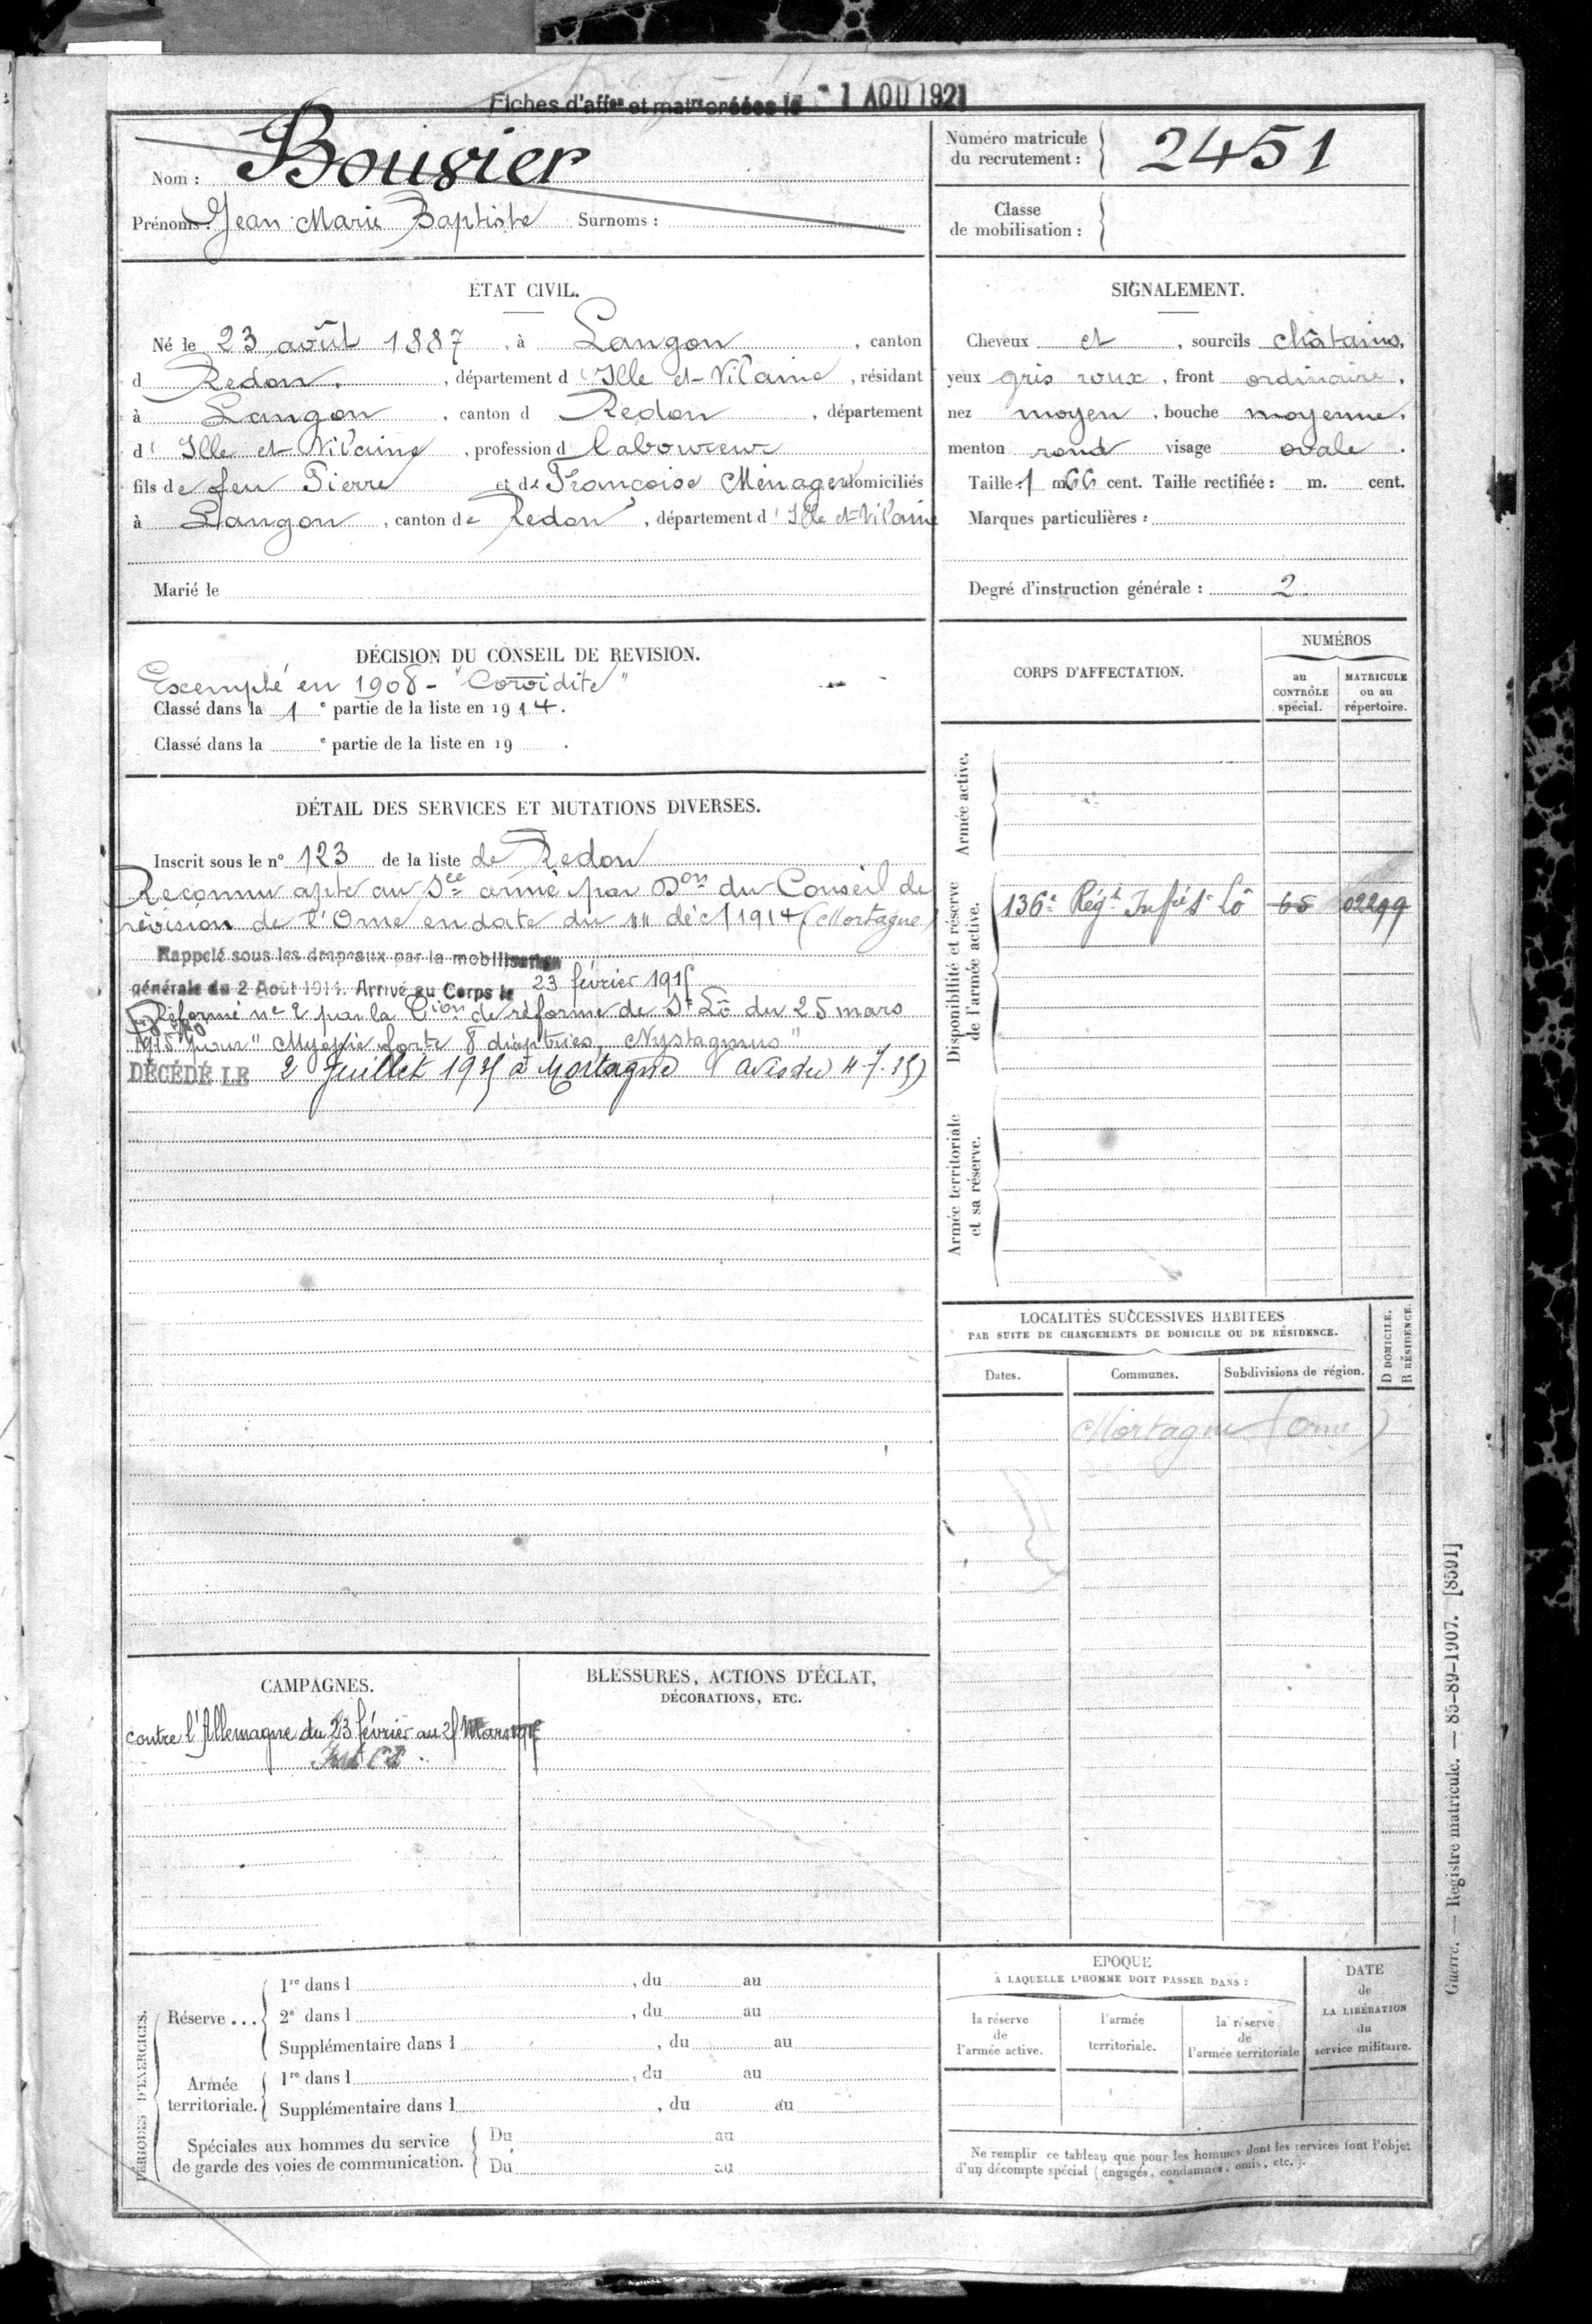 Fiches d'aff^on et mat^le créées le - 1 AOU 1921
Nom : Bouvier
Prénoms : Jean Marie Baptiste Surnoms :
Numéro matricule
du recrutement : 2451
Classe
de mobilisation :
ÉTAT CIVIL.
Né le 23 août 1887, à Langon, canton
d Redon, département d'Ille et-Vilaine, résidant
à Langon, canton d Redon, département
d'Ille et-Vilaine, profession d laboureur
fils de feu Pierre et de Françoise Ménager domiciliés
à Langon, canton de Redon, département d'Ille et-Vilaine
Marié le
SIGNALEMENT.
Cheveux et, sourcils châtains,
yeux gris roux, front ordinaire,
nez moyen, bouche moyenne,
menton rond visage ovale.
Taille : 1 m. 66 cent. Taille rectifiée : m. cent.
Marques particulières :
Degré d'instruction générale : 2
DÉCISION DU CONSEIL DE REVISION.
Exempté en 1908 -
Classé dans la 1e partie de la liste en 1914.
Classé dans la e partie de la liste en 19 .
DÉTAIL DES SERVICES ET MUTATIONS DIVERSES.
Inscrit sous le n° 123 de la liste de Redon
Reconnu apte au Sce armé par Don du Conseil de
révision de l'Orne en date du déc 1914 (Mortagne)
Rappelé sous les drapeaux par la mobilisation
générale du 2 Août 1914. Arrivé au Corps le 23 février 1915
Réformé n° 2 par la Cion de réforme de St Lô du 25 mars
1915 pour "Myopie forte 8 dioptries, Nystagmus"
DÉCÉDÉ LE 2 Juillet 1935 à Mortagne (avis du 4.7.35)
CORPS D'AFFECTATION.
NUMÉROS
au
CONTRÔLE
spécial.
MATRICULE
ou au
répertoire.
Armée active.
Disponibilité et réserve
de l'armée active.
136e Régt Infie St Lô 65 02299
Armée territoriale
et sa réserve.
LOCALITÉS SUCCESSIVES HABITÉES
PAR SUITE DE CHANGEMENTS DE DOMICILE OU DE RÉSIDENCE.
D DOMICILE.
R RÉSIDENCE.
Dates. Communes. Subdivisions de région.
Mortagne (Orne)
CAMPAGNES.
contre l'Allemagne du 23 février au 25 Mars 1915
BLESSURES, ACTIONS D'ÉCLAT,
DÉCORATIONS, ETC.
PÉRIODES D'EXERCICES.
Réserve ...
1re dans l , du au
2e dans l , du au
Supplémentaire dans l , du au
Armée
territoriale.
1re dans l , du au
Supplémentaire dans l , du au
Spéciales aux hommes du service
de garde des voies de communication.
Du au
Du au
ÉPOQUE
À LAQUELLE L'HOMME DOIT PASSER DANS :
la réserve
de
l'armée active.
l'armée
territoriale.
la réserve
de
l'armée territoriale
DATE
de
LA LIBÉRATION
du
service militaire.
Ne remplir ce tableau que pour les hommes dont les services font l'objet
d'un décompte spécial (engagés, condamnés, omis, etc.).
Guerre. — Registre matricule. — 85-89-1907. [8591]